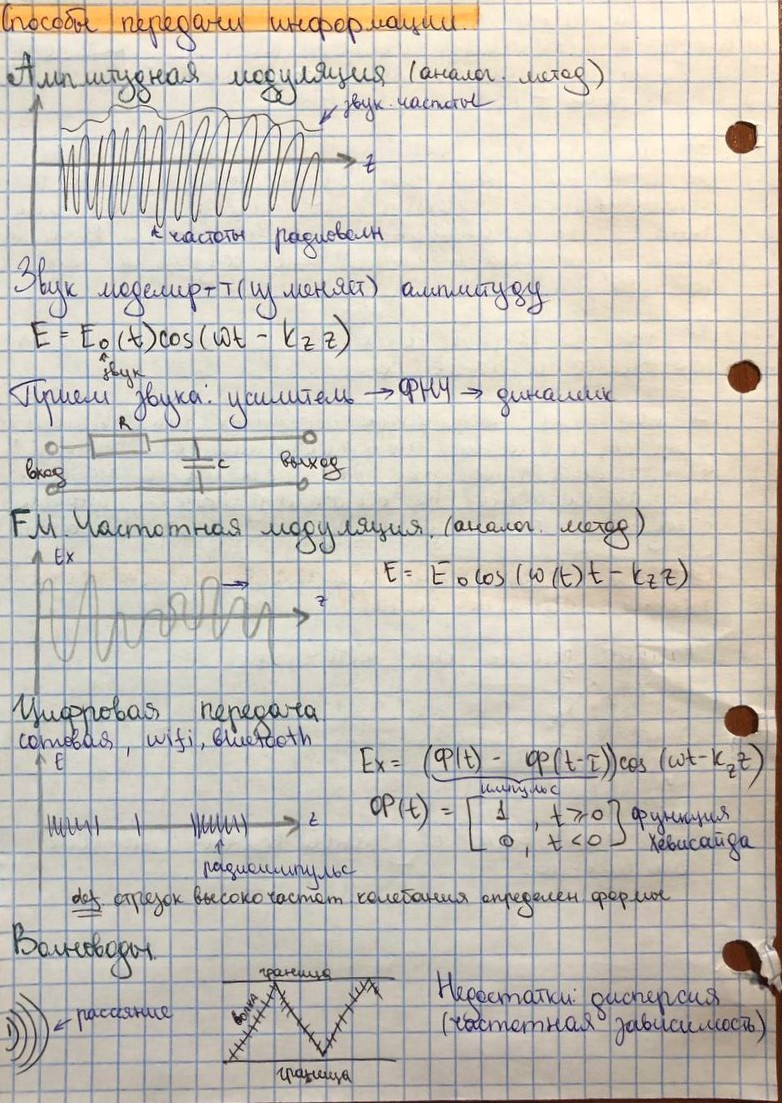 Способы передачи информации.
Амплитудная модуляция (аналог. метод)
звук. частоты
z
частоты радиоволн
Звук моделир-т (изменяет) амплитуду
E = E₀(t)cos(ωt - k_z z)
звук
Прием звука: усилитель → ФНЧ → динамик
R
вход
C
выход
FM. Частотная модуляция. (аналог. метод)
Ex
z
E = E₀cos(ω(t)t - k_z z)
Цифровая передача
сотовая, wifi, bluetooth
E
z
Ex = (Φ(t) - Φ(t-τ))cos(ωt-k_z z)
импульс
Φ(t) = [1, t≥0
0, t<0] функция Хевисайда
радиоимпульс
def. отрезок высокочастот колебания определен формы
Волноводы.
рассяние
граница
волна
граница
Недостатки: дисперсия
(частотная зависимость)